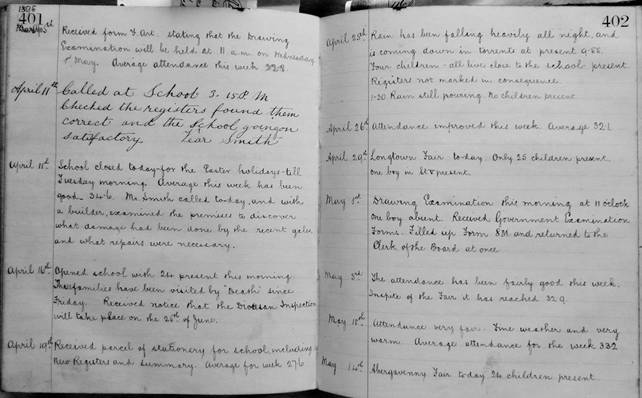 1895
401
Received form & Art. stating that the Drawing
Examination will be held at 11 a.m. on Wednesday
1st May. Average attendance this week 32.8.
April 11th Called at School 3.15 P.M
Checked the registers found them
correct and the School going on
satisfactory Smith
April 11th School closed to-day for the Easter holidays till
Tuesday morning. Average this week has been
good 34.6. Mr Smith called to-day, and with
a builder, examined the premises to discover
what damage had been done by the recent gales
and what repairs were necessary.
April 16th Opened school with 24 present this morning
Three families have been visited by "Death" since
Friday. Received notice that the Diocesan Inspection
will take place on the 25th of June.
April 19th Received parcel of stationery for school, including
New Registers and summary. Average for week 27.6
402
April 25th Rain has been falling heavily all night, and
is coming down in torrents at present 9.55.
Four children - all live close to the school present
Registers not marked in consequence
1.30 Rain still pouring. No children present
April 26th Attendance improved this week. Average 32.1
April 29th Longtown Fair to-day. Only 25 children present
one boy in present.
May 1st Drawing Examination this morning at 11 oclock
one boy absent. Received Government Examination
Forms. Filled up Form 8M and returned to the
Clerk of the Board at once.
May 3rd The attendance has been fairly good this week.
Inspite of the Fair it has reached 32.9.
May 10th Attendance very fair. Fine weather and very
warm. Average attendance for the week 33.2
May 14th Abergavenny Fair to-day 24 children present.